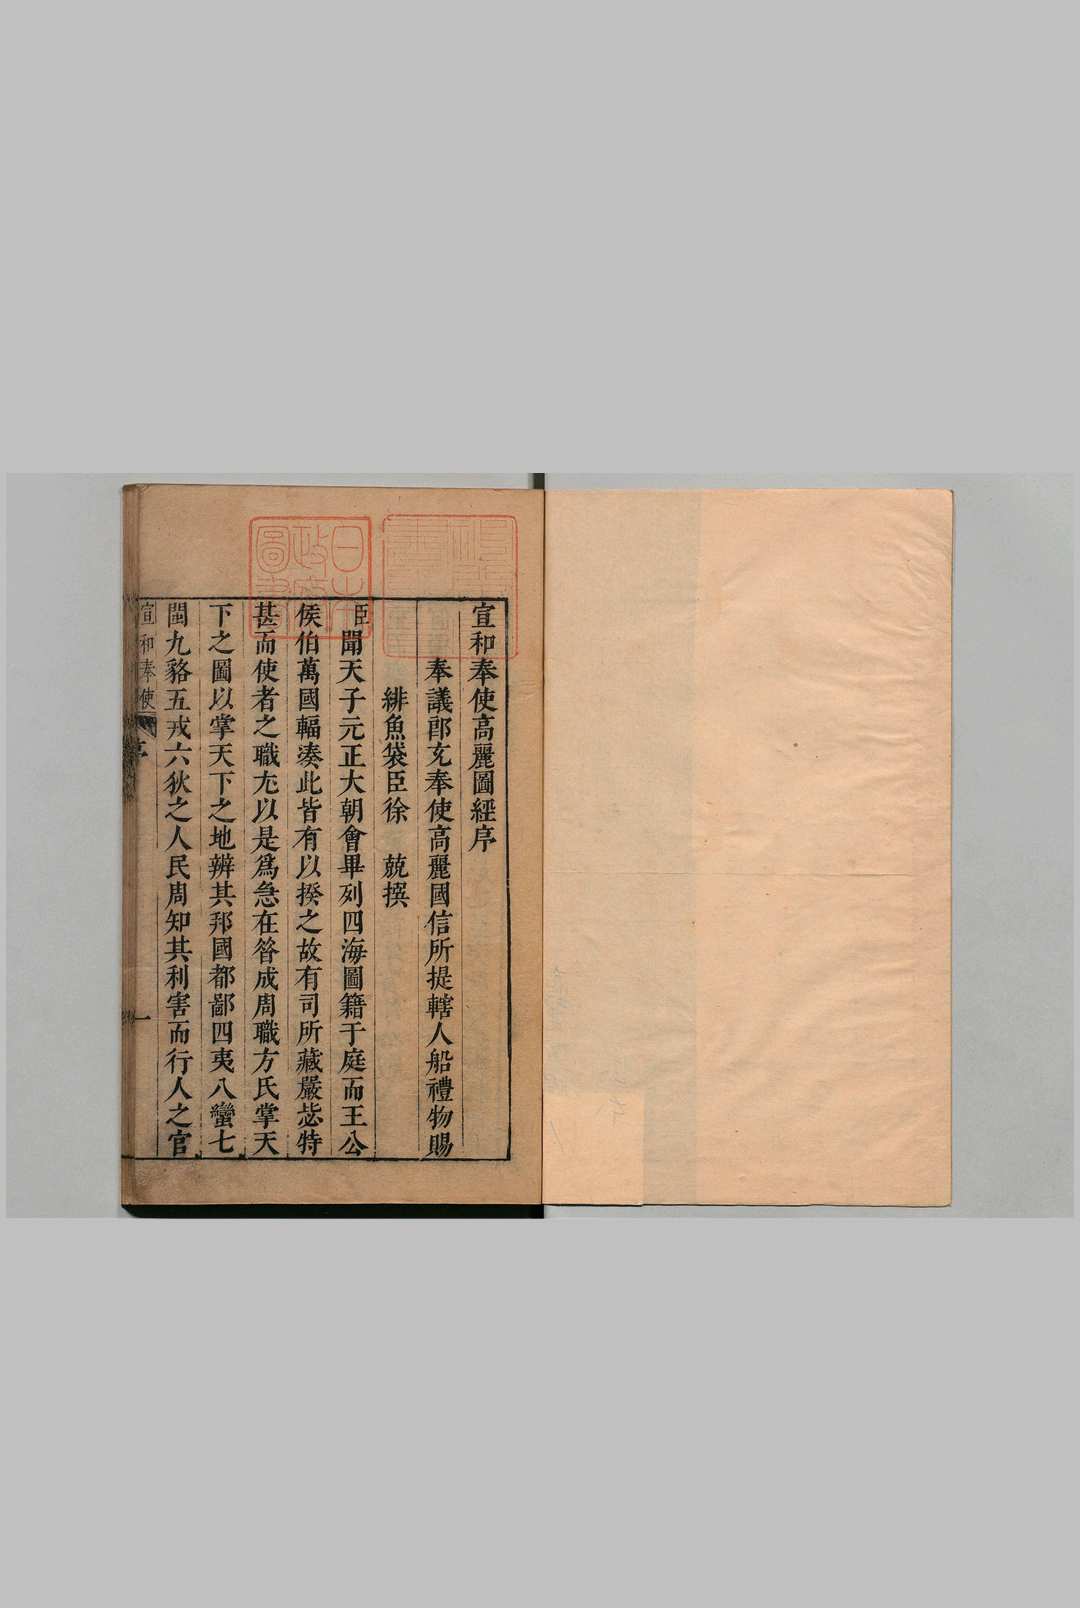 宣和奉使高麗圖經序
奉議郎充奉使高麗國信所提轄人船禮物賜
緋魚袋臣徐　兢撰
臣聞天子元正大朝會畢列四海圖籍于庭而王公
侯伯萬國輻湊此皆有以揆之故有司所藏嚴毖特
甚而使者之職尤以是爲急在昝成周職方氏掌天
下之圖以掌天下之地辨其邦國都鄙四夷八蠻七
閩九貉五戎六狄之人民周知其利害而行人之官
宣和奉使
序
一
日本
政府
圖書